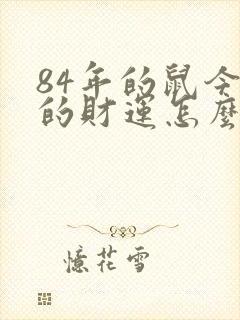 84年的鼠今
的財運怎麼
憶花雪